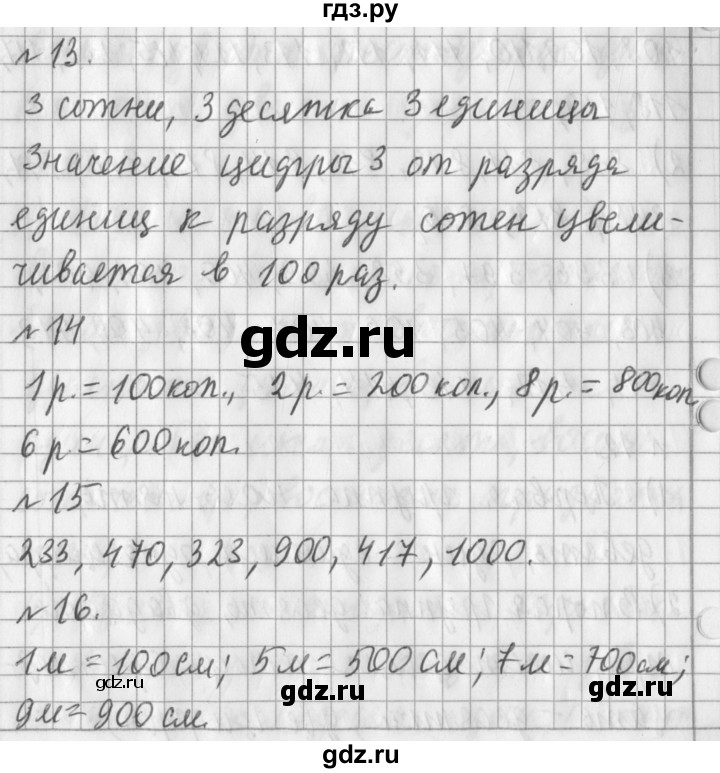 гдз.ру
№ 13.
3 сотни, 3 десятка 3 единицы
Значение цифры 3 от разряда
единиц к разряду сотен увели-
чивается в 100 раз.
№ 14
gdz.ru
1 р. = 100 коп., 2 р. = 200 коп., 8 р. = 800 коп
6 р = 600 коп.
№ 15
233, 470, 323, 900, 417, 1000.
№ 16.
1 м = 100 см; 5 м = 500 см; 7 м = 700 см;
gdz.ru gdz.ru gdz.ru
9 м = 900 см.
gdz.ru